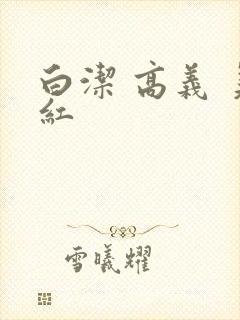 白潔 高義
紅
雪曦耀